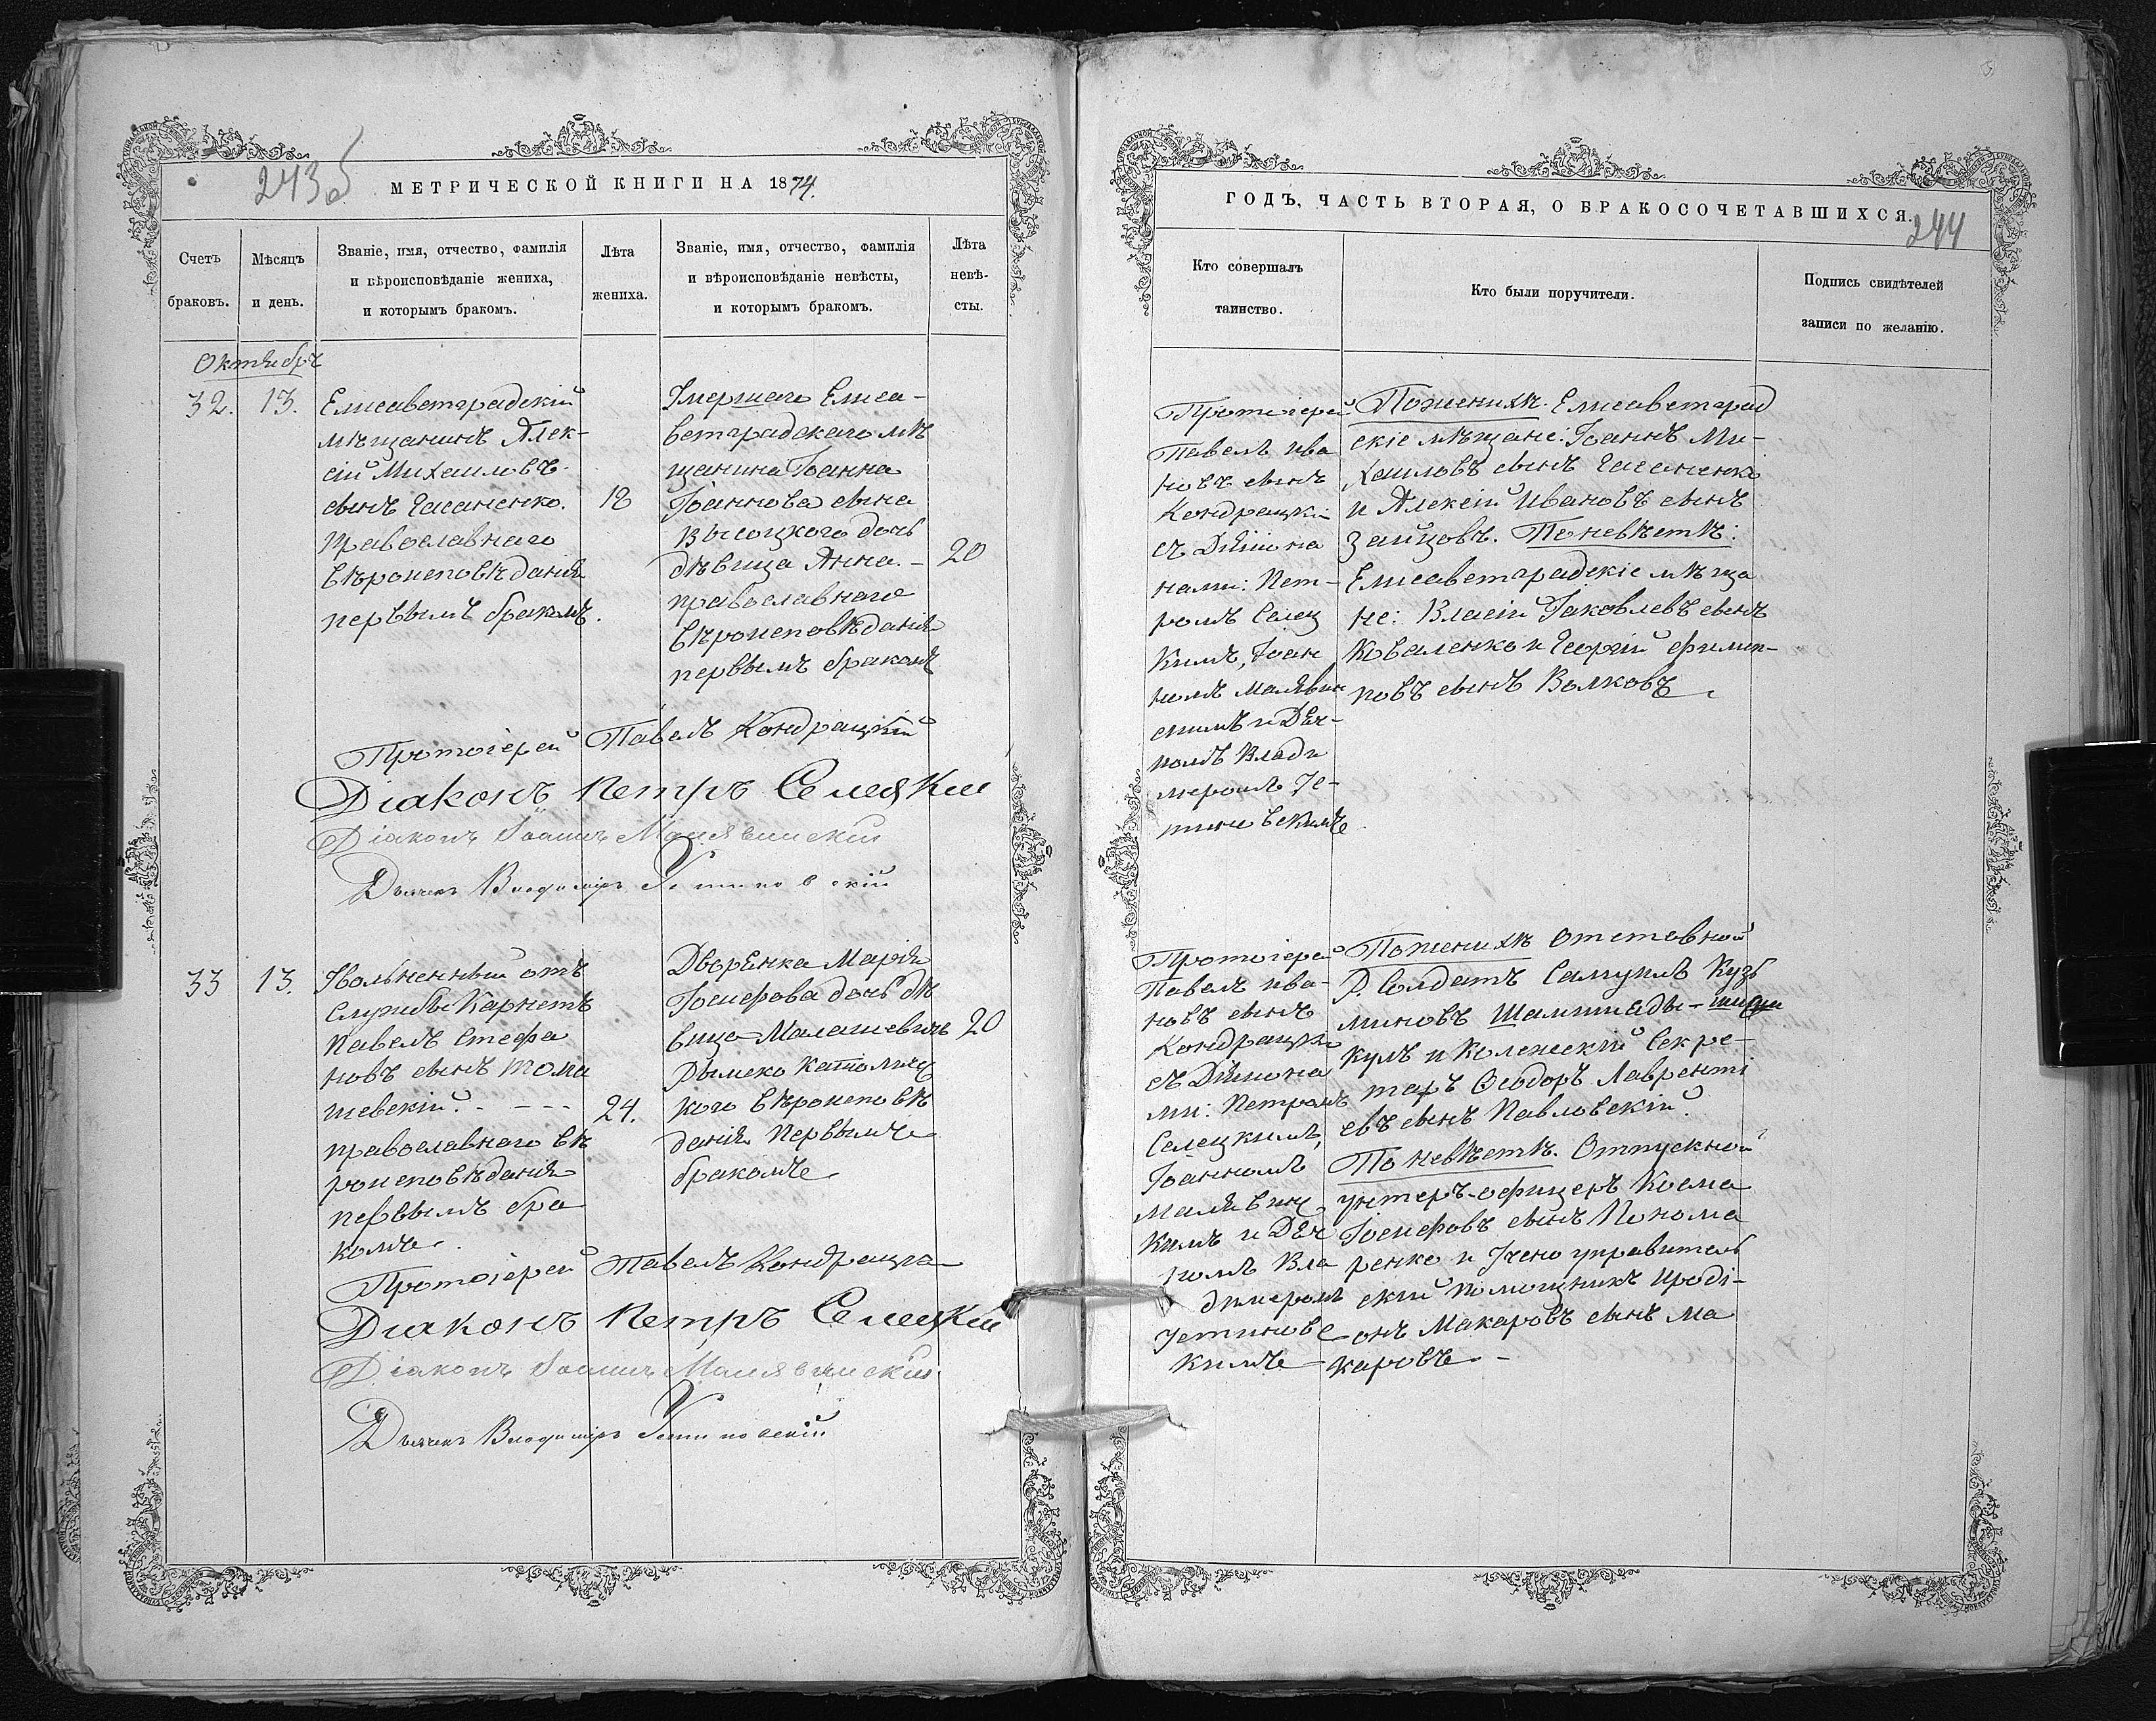 243б
МЕТРИЧЕСКОЙ КНИГИ НА 1874.
Счетъ браковъ.
Мѣсяцъ и день.
Званіе, имя, отчество, фамилія
и вѣроисповѣданіе жениха,
и которымъ бракомъ.
Лѣта
жениха.
Званіе, имя, отчество, фамилія
и вѣроисповѣданіе невѣсты,
и которымъ бракомъ.
Лѣта
невѣ-
сты.
Октябрь
32. 13.
Елисаветградскій
мѣщанинъ Алек-
сій Михаиловъ
сынъ Гасаненко.
православнаго
вѣроисповѣданія
первымъ бракомъ.
18
Умершаго Елиса-
ветградскаго мѣ
щанина Іоанна
Іоаннова сына
Высоцкого дочь
дѣвица Анна. –
православнаго
вѣроисповѣданія
первымъ бракомъ
20
Протоіерей Павелъ Кондрацкій
Діаконъ Петръ Селецкій
Діаконъ Іоаннъ Малявинскій
Дьячекъ Владиміръ Устиновскій
33 13.
Увольненный отъ
службы Карнетъ
Павелъ Стефа
новъ сынъ Тома
шевскій. - - - -
православнаго вѣ
роисповѣданія
первымъ бра
комъ.
24.
Дворянка Марія
Іосифова дочь дѣ
вица Малашевичъ
Римско Католичес
кого вѣроисповѣ
данія первымъ
бракомъ
20
Протоіерей Павелъ Кондрацкій
Діаконъ Петръ Селецкій
Діаконъ Іоаннъ Малявинскій
Дьячекъ Владиміръ Устиновскій
ГОДЪ, ЧАСТЬ ВТОРАЯ, О БРАКОСОЧЕТАВШИХСЯ.
244
Кто совершалъ
таинство.
Кто были поручители.
Подпись свидѣтелей
записи по желанію.
Протоіерей
Павелъ Ива
новъ сынъ
Кондрацкій
съ Діако́на
нами: Пет-
ромъ Селец
кимъ, Іоан
номъ Малявин
скимъ и Дяч-
комъ Влади
миромъ Ус-
тиновскимъ
По женихѣ. Елисаветград
скіе мѣщане: Іоаннъ Ми-
хаиловъ сынъ Гасаненко
и Алексій Ивановъ сынъ
Зайцовъ. По невѣстѣ:
Елисаветградскіе мѣща
не: Власій Іаковлевъ сынъ
Коваленко и Георгій Филип-
повъ сынъ Волковъ.
Протоіерей
Павелъ Ива-
новъ сынъ
Кондрацкій
съ Діякона
ми: Петромъ
Селецкимъ,
Іоанномъ
Малявинс
кимъ и Дяч
комъ Вла
димиромъ
Устиновс
кимъ
По женихѣ отставной
Р. Солдатъ Самуилъ Кузь
миновъ
кулъ и Колежскій Секре-
таръ Ѳеодоръ Лавренті
евъ сынъ Павловскій.
По невѣстѣ. Отпускной
унтеръ-офицеръ Косма
Іосифовъ сынъ Понома
ренко и Учено управитель
скій помощникъ Ироді-
онъ Макаровъ сынъ Ма
каровъ. –